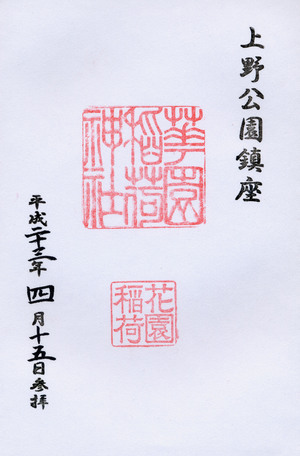 上野公園鎮座
華園
稲荷
神社
花園
稲荷
平成二十三年四月十五日参拝